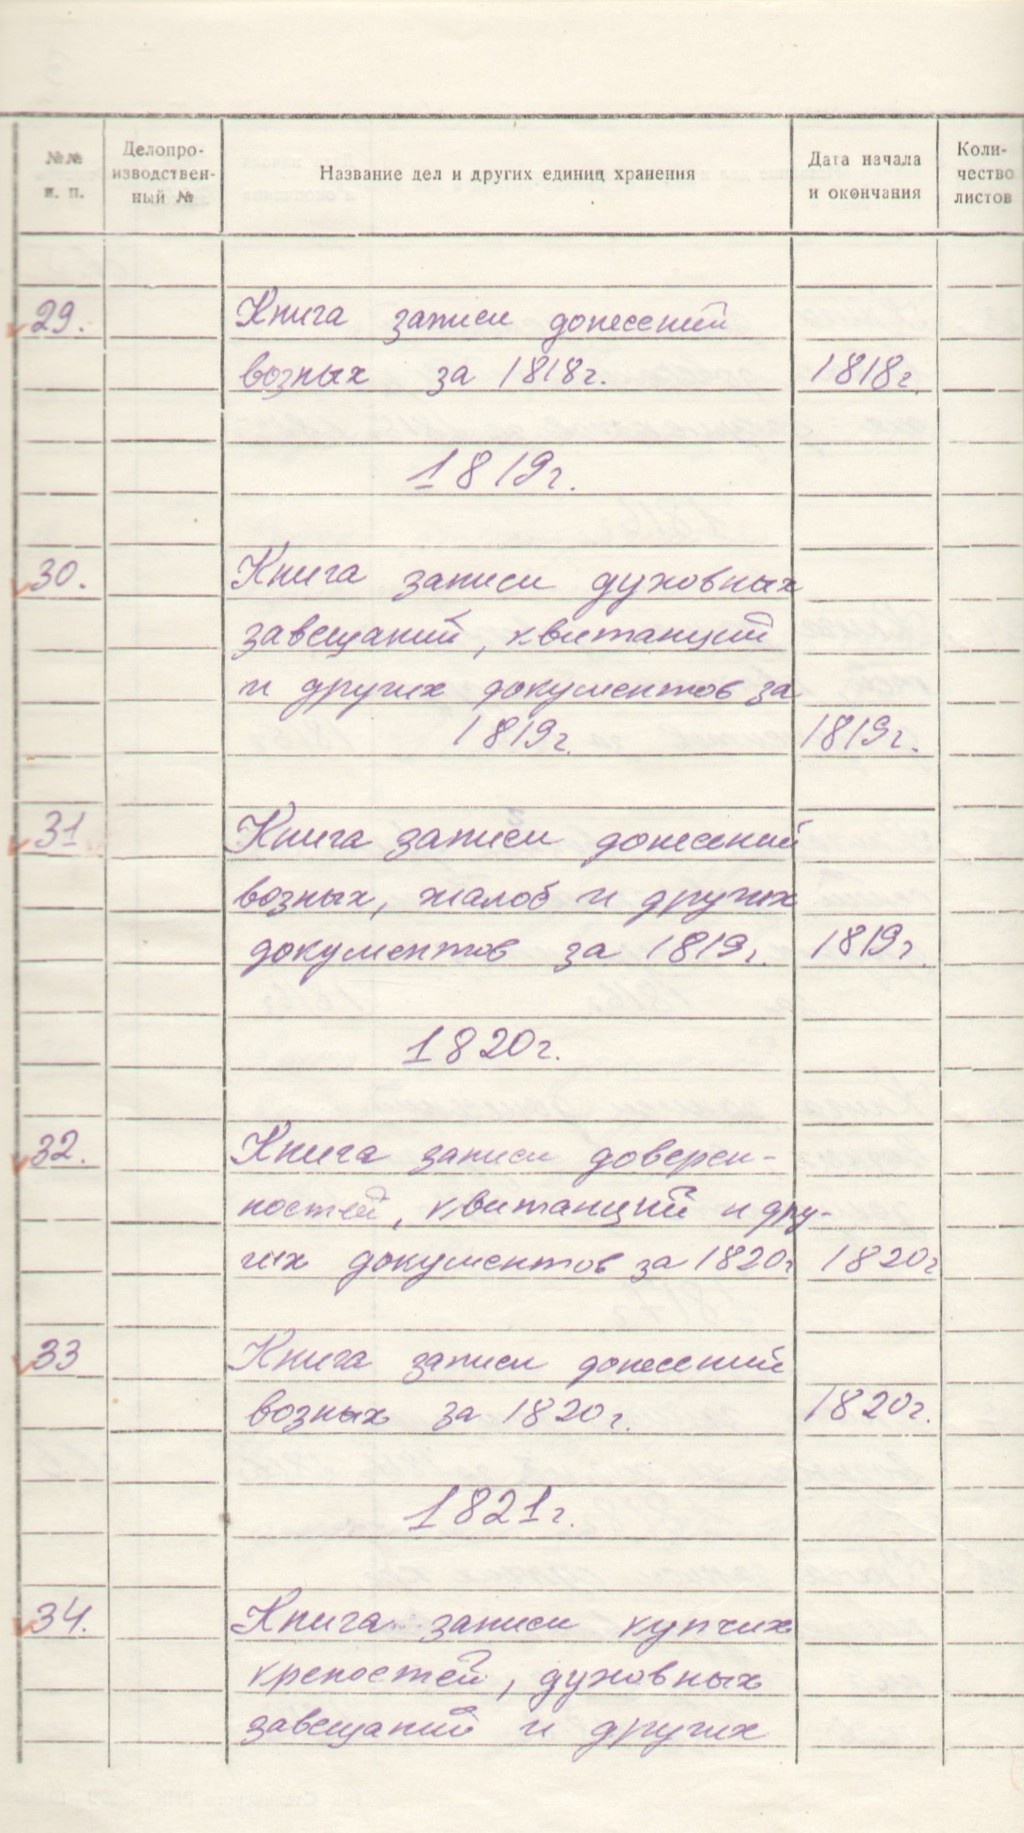 №№ п. п.
Делопро-
изводствен-
ный №
Название дел и других единиц хранения
Дата начала
и окончания
Коли-
чество
листов
29. Книга записи донесений
возных за 1818г. 1818г.
1819г.
30. Книга записи духовных
завещаний, квитанций
и других документов за
1819г. 1819г.
31 Книга записи донесений
возных, жалоб и других
документов за 1819г. 1819г.
1820г.
32. Книга записи доверен-
ностей, квитанций и дру-
гих документов за 1820г 1820г
33 Книга записи донесений
возных за 1820г. 1820г.
1821г.
34. Книга записи купчих
крепостей, духовных
завещаний и других